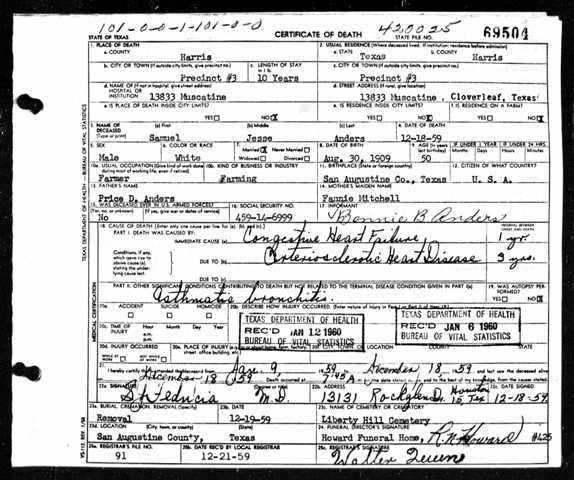 101-0-0-1-101-0-0
420025
STATE OF TEXAS
CERTIFICATE OF DEATH
STATE FILE NO.
69504
1. PLACE OF DEATH
a. COUNTY
Harris
2. USUAL RESIDENCE (Where deceased lived. If institution: residence before admission)
a. STATE
Texas
b. COUNTY
Harris
b. CITY OR TOWN (If outside city limits, give precinct no.)
Precinct #3
c. LENGTH OF STAY
10 Years
c. CITY OR TOWN (If outside city limits, give precinct no.)
Precinct #3
d. NAME OF (If not in hospital, give street address)
HOSPITAL OR
INSTITUTION
13833 Muscatine
d. STREET ADDRESS (If rural, give location)
13833 Muscatine , Cloverleaf, Texas
e. IS PLACE OF DEATH INSIDE CITY LIMITS?
YES NO X
e. IS RESIDENCE INSIDE CITY LIMITS?
YES NO X
f. IS RESIDENCE ON A FARM?
YES NO X
3. NAME OF DECEASED (Type or print)
(a) First
Samuel
(b) Middle
Jesse
(c) Last
Anders
4. DATE OF DEATH
12-18-59
5. SEX
Male
6. COLOR OR RACE
White
7. Married X Never Married
Widowed Divorced
8. DATE OF BIRTH
Aug. 30, 1909
9. AGE (In years last birthday)
50
IF UNDER 1 YEAR
Months Days
IF UNDER 24 HRS.
Hours Min.
10a. USUAL OCCUPATION (Give kind of work done during most of working life, even if retired)
Farmer
10b. KIND OF BUSINESS OR INDUSTRY
Farming
11. BIRTHPLACE (State or foreign country)
San Augustine Co., Texas
12. CITIZEN OF WHAT COUNTRY?
U. S. A.
13. FATHER'S NAME
Price D. Anders
14. MOTHER'S MAIDEN NAME
Fannie Mitchell
15. WAS DECEASED EVER IN U.S. ARMED FORCES?
No
16. SOCIAL SECURITY NO.
459-14-6999
17. INFORMANT
Bonnie B Anders
18. CAUSE OF DEATH (Enter only one cause per line for (a), (b), and (c).)
INTERVAL BETWEEN
ONSET AND DEATH
PART I. DEATH WAS CAUSED BY:
IMMEDIATE CAUSE (a)
Congestive Heart Failure,
1 yr.
Conditions, if any, which gave rise to above cause (a), stating the underlying cause last.
DUE TO (b)
Arteriosclerotic Heart Disease
3 yrs.
DUE TO (c)
PART II. OTHER SIGNIFICANT CONDITIONS CONTRIBUTING TO DEATH BUT NOT RELATED TO THE TERMINAL DISEASE CONDITION GIVEN IN PART I(a)
Asthmatic bronchitis.
19. WAS AUTOPSY PERFORMED?
YES NO X
20a. ACCIDENT SUICIDE HOMICIDE
20b. DESCRIBE HOW INJURY OCCURRED.
20c. TIME OF INJURY
Hour Month Day Year
a.m.
p.m.
TEXAS DEPARTMENT OF HEALTH
REC'D JAN 12 1960
BUREAU OF VITAL STATISTICS
TEXAS DEPARTMENT OF HEALTH
REC'D JAN 6 1960
BUREAU OF VITAL STATISTICS
20d. INJURY OCCURRED
WHILE AT WORK NOT WHILE AT WORK
20e. PLACE OF INJURY
street, office building, etc.)
20f. CITY, TOWN
COUNTY STATE
21. I hereby certify that I attended the deceased from
Jan. 9, 1959 to December 18, 1959
December 18 1959 Death occurred at 7:45 A
22a. SIGNATURE
M.D.
(Degree or title)
22b. ADDRESS
13131
Houston
15 Tex
22c. DATE SIGNED
12-18-59
23a. BURIAL, CREMATION, REMOVAL (Specify)
Removal
23b. DATE
12-19-59
23c. NAME OF CEMETERY OR CREMATORY
Liberty Hill Cemetery
23d. LOCATION (City, town, or county) (State)
San Augustine County, Texas
24. FUNERAL DIRECTOR'S SIGNATURE
Howard Funeral Home, R.N. Howard #425
25a. REGISTRAR'S FILE NO.
91
25b. DATE REC'D BY LOCAL REGISTRAR
12-21-59
25c. REGISTRAR'S SIGNATURE
Walter
TEXAS DEPARTMENT OF HEALTH — BUREAU OF VITAL STATISTICS
MEDICAL CERTIFICATION